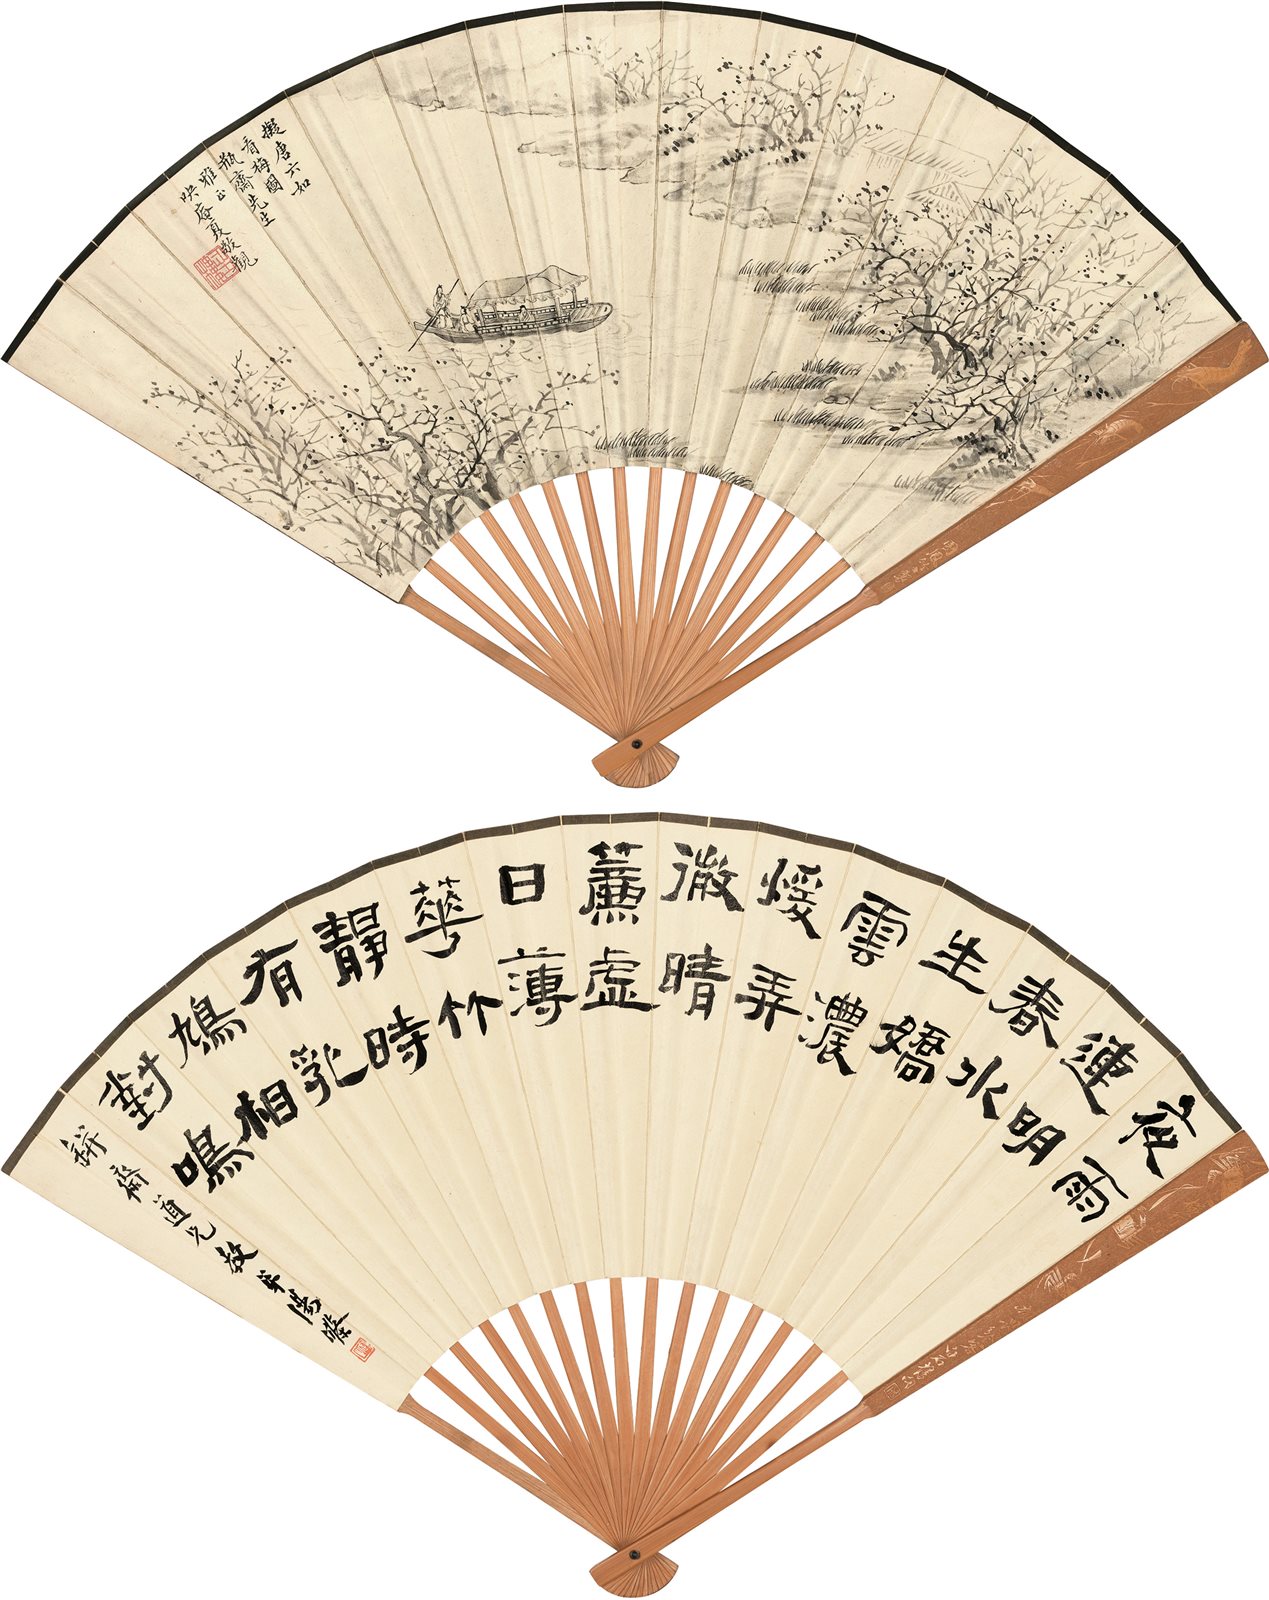 擬唐六如
看梅圖
瓶齋先生
雅正
吷庵夏敬觀
夜雨
連明
春水
生嬌
雲濃
煖弄
微晴
簾虛
日薄
華竹
靜時
有乳
鳩相
對鳴
缾齋道兄教弟湯滌